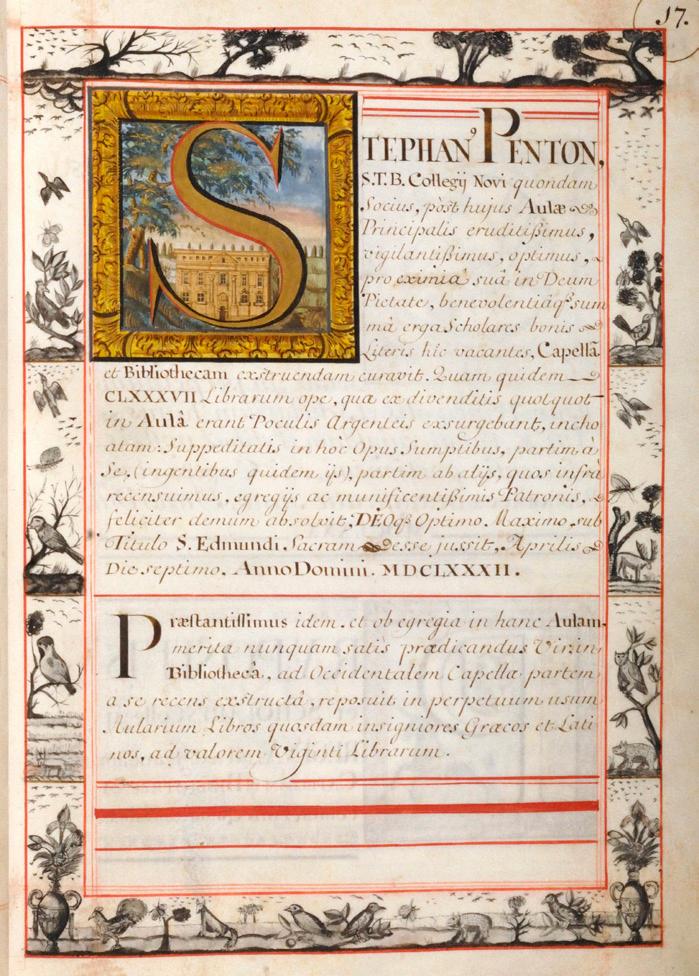 17.
STEPHAN, PENTON,
S.T.B. Collegij Novi quondam
Socius, pòst hujus Aulæ
Principalis eruditißimus,
vigilantißimus, optimus,
pro eximiâ suâ in Deum
Pietate, benevolentiâq, sum
mâ erga Scholares bonis
Literis hîc vacantes, Capellã
et Bibliothecam exstruendam curavit. Quam quidem
CLXXXVII Librarum ope, quæ ex divenditis quotquot
in Aulâ erant Poculis Argenteis exsurgebant, incho
atam: Suppeditatis in hôc Opus Sumptibus, partim à
Se, (ingentibus quidem ijs), partim ab alijs, quos infrà
recensuimus, egregijs ac munificentißimis Patronis,
feliciter demum absolvit; DEOq, Optimo Maximo, sub
Titulo S. Edmundi, Sacram esse jussit, Aprilis
Die septimo. Anno Domini. MDCLXXXII.
Præstantissimus idem, et ob egregia in hanc Aulam,
merita nunquam satis prædicandus Vir, in
Bibliothecâ, ad Occidentalem Capellæ partem
a se recens exstructâ, reposuit in perpetuum usum
Aularium Libros quosdam insigniores Græcos et Lati
nos, ad valorem Viginti Librarum.